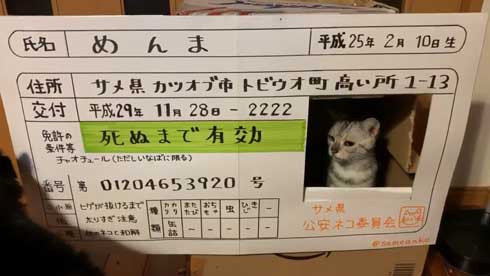 氏名 めんま 平成25年 2月 10日 生
住所 サメ県 カツオブ市 トビウオ町 高い所 1-13
交付 平成29年 11月 28日 - 2222
免許の条件等 死ぬまで有効
チャオチュール(ただしいなばに限る)
番号 第 01204653920 号
ヒゲが抜けるまで
太りすぎ注意
他のネコと和解
種類 カリカリ またたび おもちゃ 虫 ひじき -
缶詰 - - - - -
サメ県
公安ネコ委員会
@sameanku